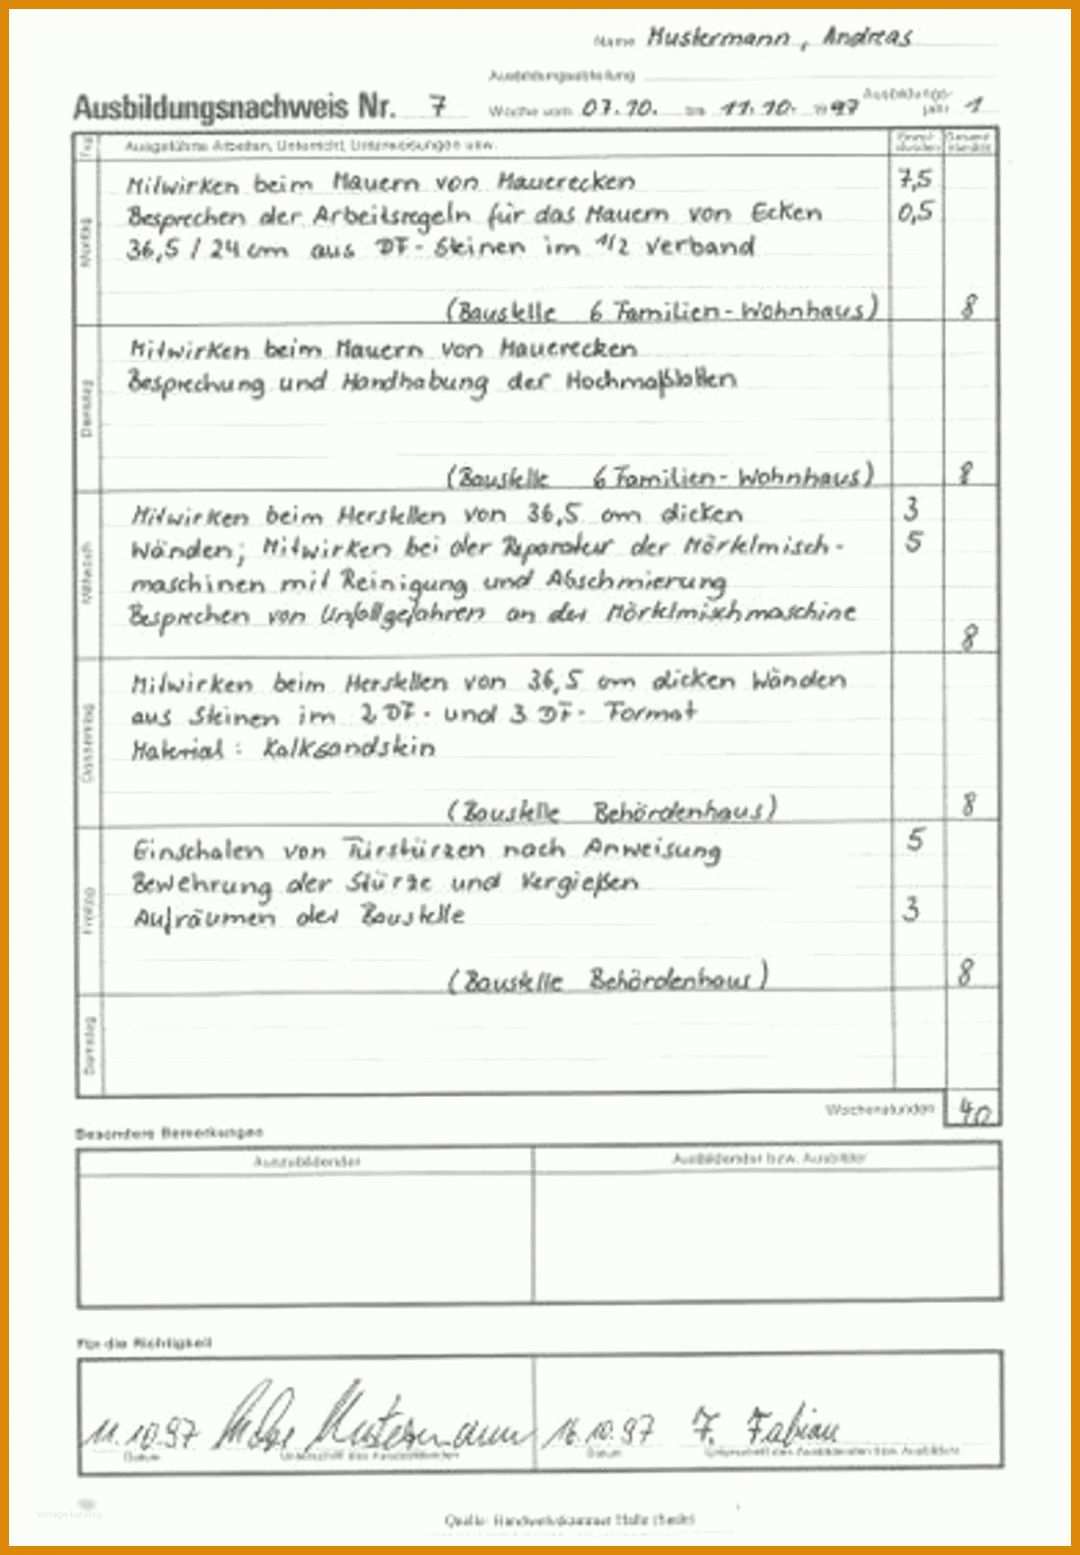 Name Mustermann, Andreas
Ausbildungsabteilung
Ausbildungsnachweis Nr. 7 Woche vom 07.10. bis 11.10. 1997 Ausbildungs-
jahr 1
Tag Ausgeführte Arbeiten, Unterricht, Unterweisungen usw. Einzel- Gesamt-
stunden stunden
Montag
Mitwirken beim Mauern von Mauerecken 7,5
Besprechen der Arbeitsregeln für das Mauern von Ecken 0,5
36,5 / 24 cm aus DF-Steinen im 1/2 Verband
(Baustelle 6 Familien-Wohnhaus) 8
Dienstag
Mitwirken beim Mauern von Mauerecken
Besprechung und Handhabung der Hochmaßlatten
(Baustelle 6 Familien-Wohnhaus) 8
Mittwoch
Mitwirken beim Herstellen von 36,5 cm dicken 3
Wänden; Mitwirken bei der Reparatur der Mörtelmisch- 5
maschinen mit Reinigung und Abschmierung
Besprechen von Unfallgefahren an der Mörtelmischmaschine
8
Donnerstag
Mitwirken beim Herstellen von 36,5 cm dicken Wänden
aus Steinen im 2 DF- und 3 DF- Format
Material: Kalksandstein
(Baustelle Behördenhaus) 8
Freitag
Einschalen von Türstürzen nach Anweisung 5
Bewehrung der Stürze und Vergießen
Aufräumen der Baustelle 3
(Baustelle Behördenhaus) 8
Wochenstunden 40
Besondere Bemerkungen
Auszubildender Ausbildender bzw. Ausbilder
Für die Richtigkeit
11.10.97 Mustermann 16.10.97 F. Fabian
Datum Unterschrift des Auszubildenden Datum Unterschrift des Ausbildenden bzw. Ausbilders
Quelle: Handwerkskammer Halle (Saale)